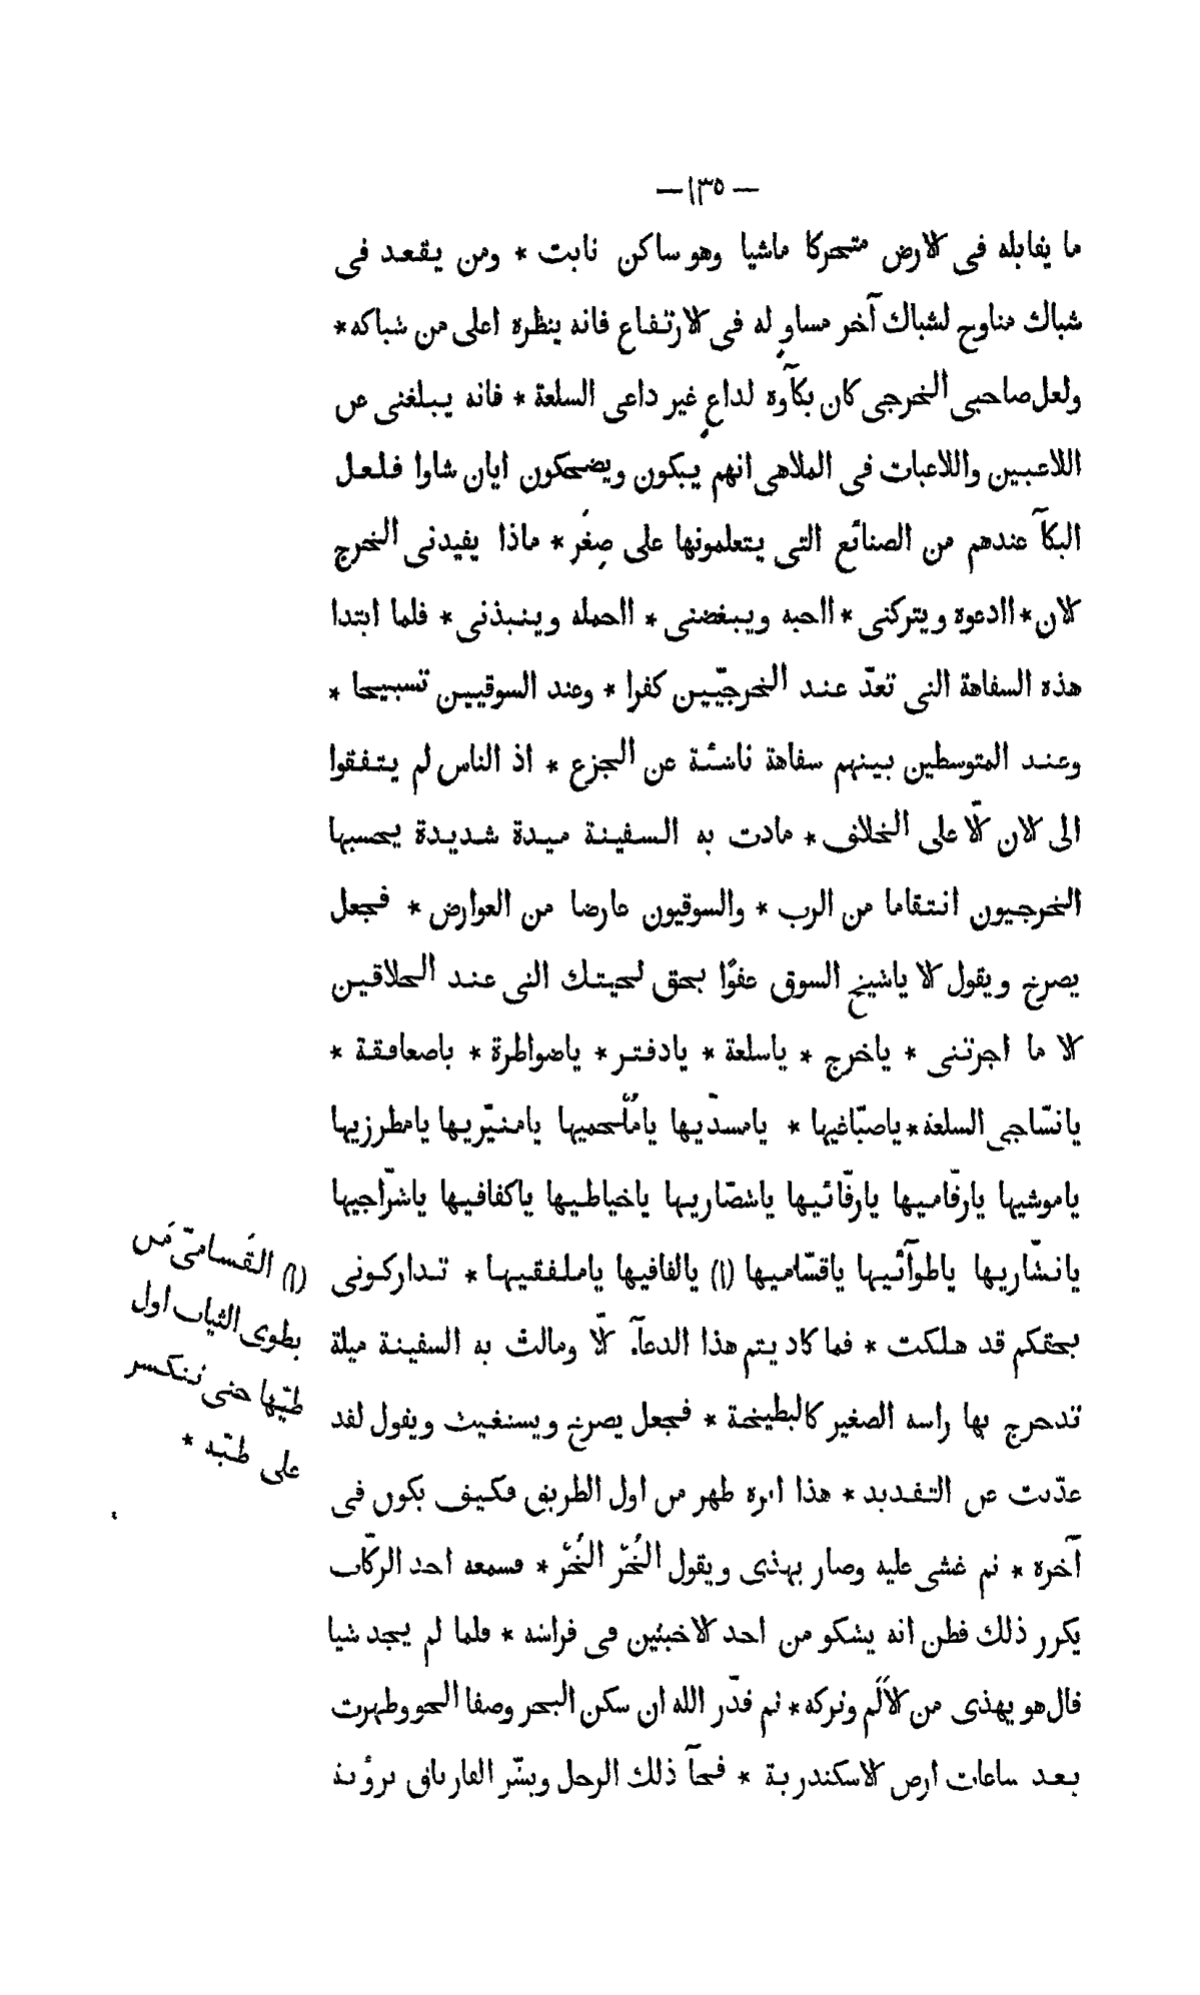 — ١٣٥ —
ما يقابله فى الارض متحركا ماشيا وهو ساكن ثابت * ومن يقعد فى
شباك مناوح لشباك آخر مساوٍ له فى الارتفاع فانه ينظره اعلى من شباكه *
ولعل صاحبى الخرجى كان بكآوه لداعٍ غير داعى السلعة * فانه يبلغنى عن
اللاعبين واللاعبات فى الملاهى انهم يبكون ويضحكون ايان شاوا فلعل
البكآ عندهم من الصنائع التى يتعلمونها على صِغَر * ماذا يفيدنى الخرج
الان * اادعوه ويتركنى * ااحبه ويبغضنى * ااحمله وينبذنى * فلما ابتدا
هذه السفاهة التى تعدّ عند الخرجيّيين كفرا * وعند السوقيين تسبيحا *
وعند المتوسطين بينهم سفاهة ناشئة عن الجزع * اذ الناس لم يتفقوا
الى الان الّا على الخلاف * مادت به السفينة ميدة شديدة يحسبها
الخرجيون انتقاما من الرب * والسوقيون عارضا من العوارض * فجعل
يصرخ ويقول الا ياشيخ السوق عفوًا بحق لحيتك التى عند الحلاقين
الا ما اجرتنى * ياخرج * ياسلعة * يادفتر * ياضواطرة * ياصعافقة *
يانسّاجى السلعة * ياصبّاغيها * يامسدّيها يامُلْحميها يامنيّريها يامطرزيها
ياموشيها يارقّاميها يارفّائيها ياشصّاريها ياخياطيها ياكفافيها ياشرّاجيها
يانشّاريها ياطوآئيها ياقسّاميها (١) يالفافيها ياملفقيها * تداركونى
بحقكم قد هلكت * فما كاد يتم هذا الدعآء الّا ومالت به السفينة ميلة
تدحرج بها راسه الصغير كالبطيخة * فجعل يصرخ ويستغيث ويقول لقد
عدّيت عن التفديد * هذا اثره ظهر من اول الطريق فكيف يكون فى
آخره * ثم غشى عليه وصار يهذى ويقول الخُرّ الخُرّ * فسمعه احد الركّاب
يكرر ذلك فظن انه يشكو من احد الاخبثين فى فراشه * فلما لم يجد شيا
قال هو يهذى من الاَلَم وتركه * ثم قدّر الله ان سكن البحر وصفا الجو وظهرت
بعد ساعات ارض الاسكندرية * فجآ ذلك الرجل وبشّر الفارياق برؤية
(١) القَسامىّ مَن
يطوى الثياب اول
طيّها حتى تنكسر
على طيّه *